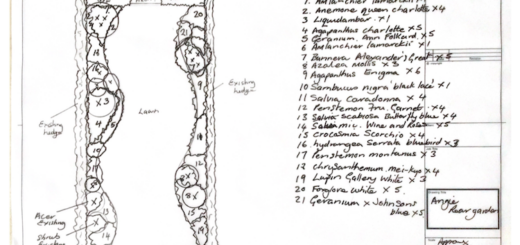 1. Amelanchier Lamarckii x1
2. Anemone queen charlotte x4
3. Liquidambar. x1
4 Agapanthus charlotte x5
5 Geranium. Ann Folkard. x5
6 Amelanchier lamarckii x1
7 Brunnera Alexander's Great x5
8 Azalea mollis x3
9 Agapanthus Enigma x6
10 Sambucus nigra black lace x1
11 Salvia Caradonna x4
12 Penstemon Garnet x4
13 Scabiosa Butterfly blue x4
14 Salvia mic. Wine and Roses x5
15 Crocosmia Scorchio x4
16 hydrangea Serrata bluebird x3
17 Penstemon montanus x3
18 chrysanthemum mei-kyo x4
19 Lupin Gallery White x3
20 Foxglove White x5
21 Geranium x Johnsons
blue x5
Existing
hedge
Lawn
Existing
hedge
Acer
Existing
Shrubs
Existing
Angie
Rear garden
Approx